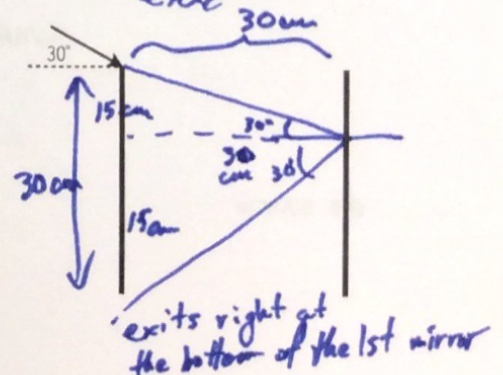 30cm
30°
15cm
30°
30
cm
30°
30cm
15cm
exits right at
the bottom of the 1st mirror